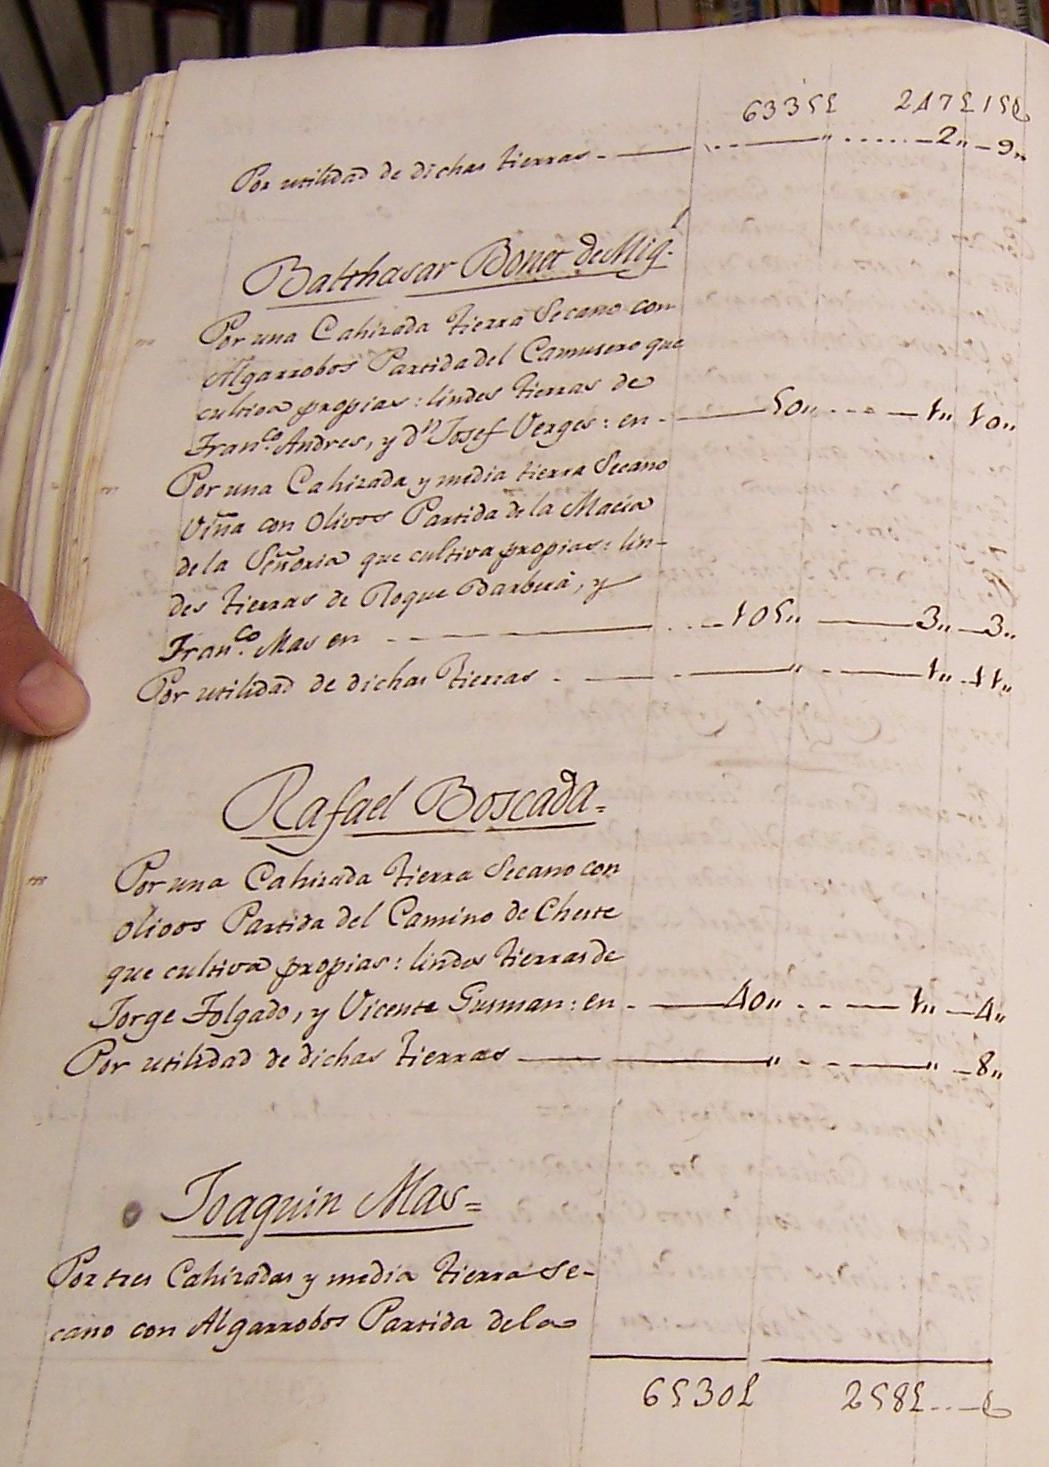 6335£ 247£15ſ
Por utilidad de dichas tierras - — „ — 2„ — 9„
Balthasar Bonet de Mig.l
Por una Cahizada tierra Secano con
Algarrobos Partida del Camusero que
cultiva propias: lindes tierras de
Fran.co Andres, y Dn Josef Verges: en - — 50„ - - - — 1„ 10„
Por una Cahizada y media tierra Secano
Viña con Olivos Partida de la Macia
de la Señoria que cultiva propias: lin-
des tierras de Roque Barberà, y
Fran.co Mas en - - — 105„ — 3„ — 3„
Por utilidad de dichas tierras - — „ - — 1„ - 11„
Rafael Boscada=
Por una Cahizada tierra Secano con
olivos Partida del Camino de Cheste
que cultiva propias: lindes tierras de
Jorge Folgado, y Vicente Gusman: en - — 40„ - - — 1„ — 4„
Por utilidad de dichas tierras — — „ - - — „ — 8„
Joaquin Mas=
Por tres Cahizadas y media tierra Se-
cano con Algarrobos Partida de la
6530£ 258£ - - — ſ